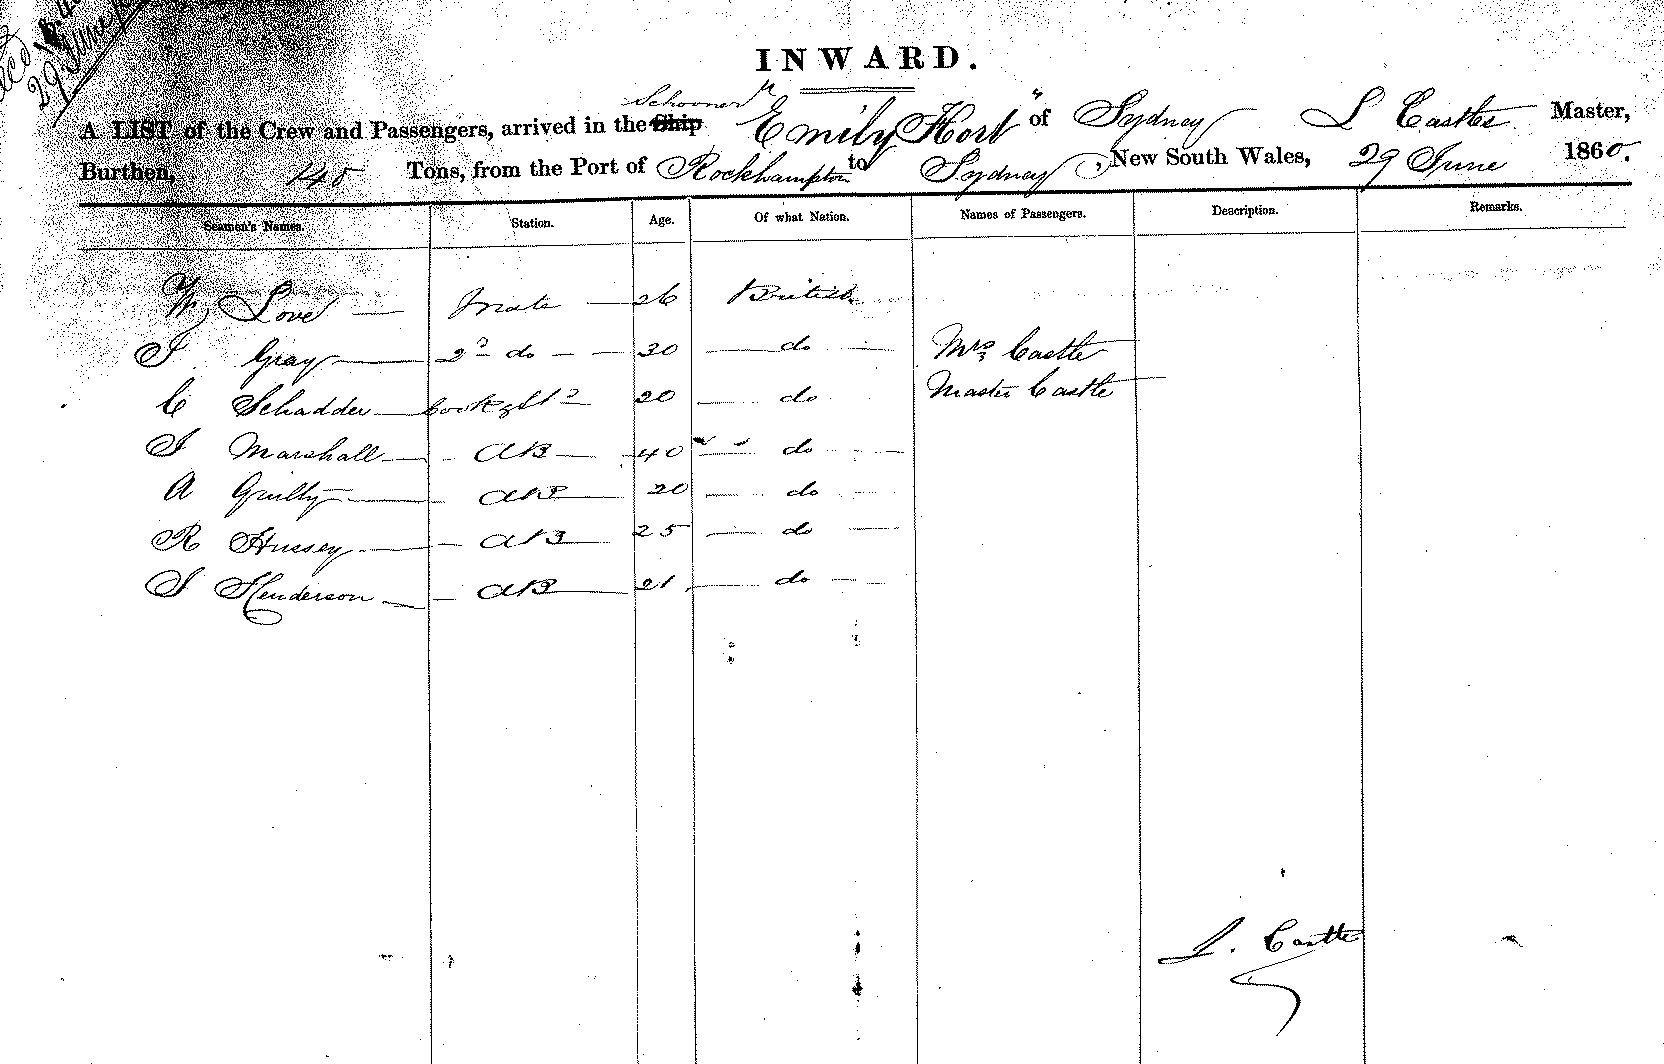 29 June
INWARD.
Schooner
A LIST of the Crew and Passengers, arrived in the Ship "Emily Hort" of Sydney L Castle Master,
Burthen, 140 Tons, from the Port of Rockhampton to Sydney, New South Wales, 29 June 1860.
Seamen's Names. Station. Age. Of what Nation. Names of Passengers. Description. Remarks.
Wm Love Mate 26 British
J Gray 2d do 30 do Mrs Castle
C Schadder Cook & St 20 do Master Castle
J Marshall AB 40 do
A Guilty AB 20 do
R Hussey AB 25 do
J Henderson AB 21 do
L. Castle